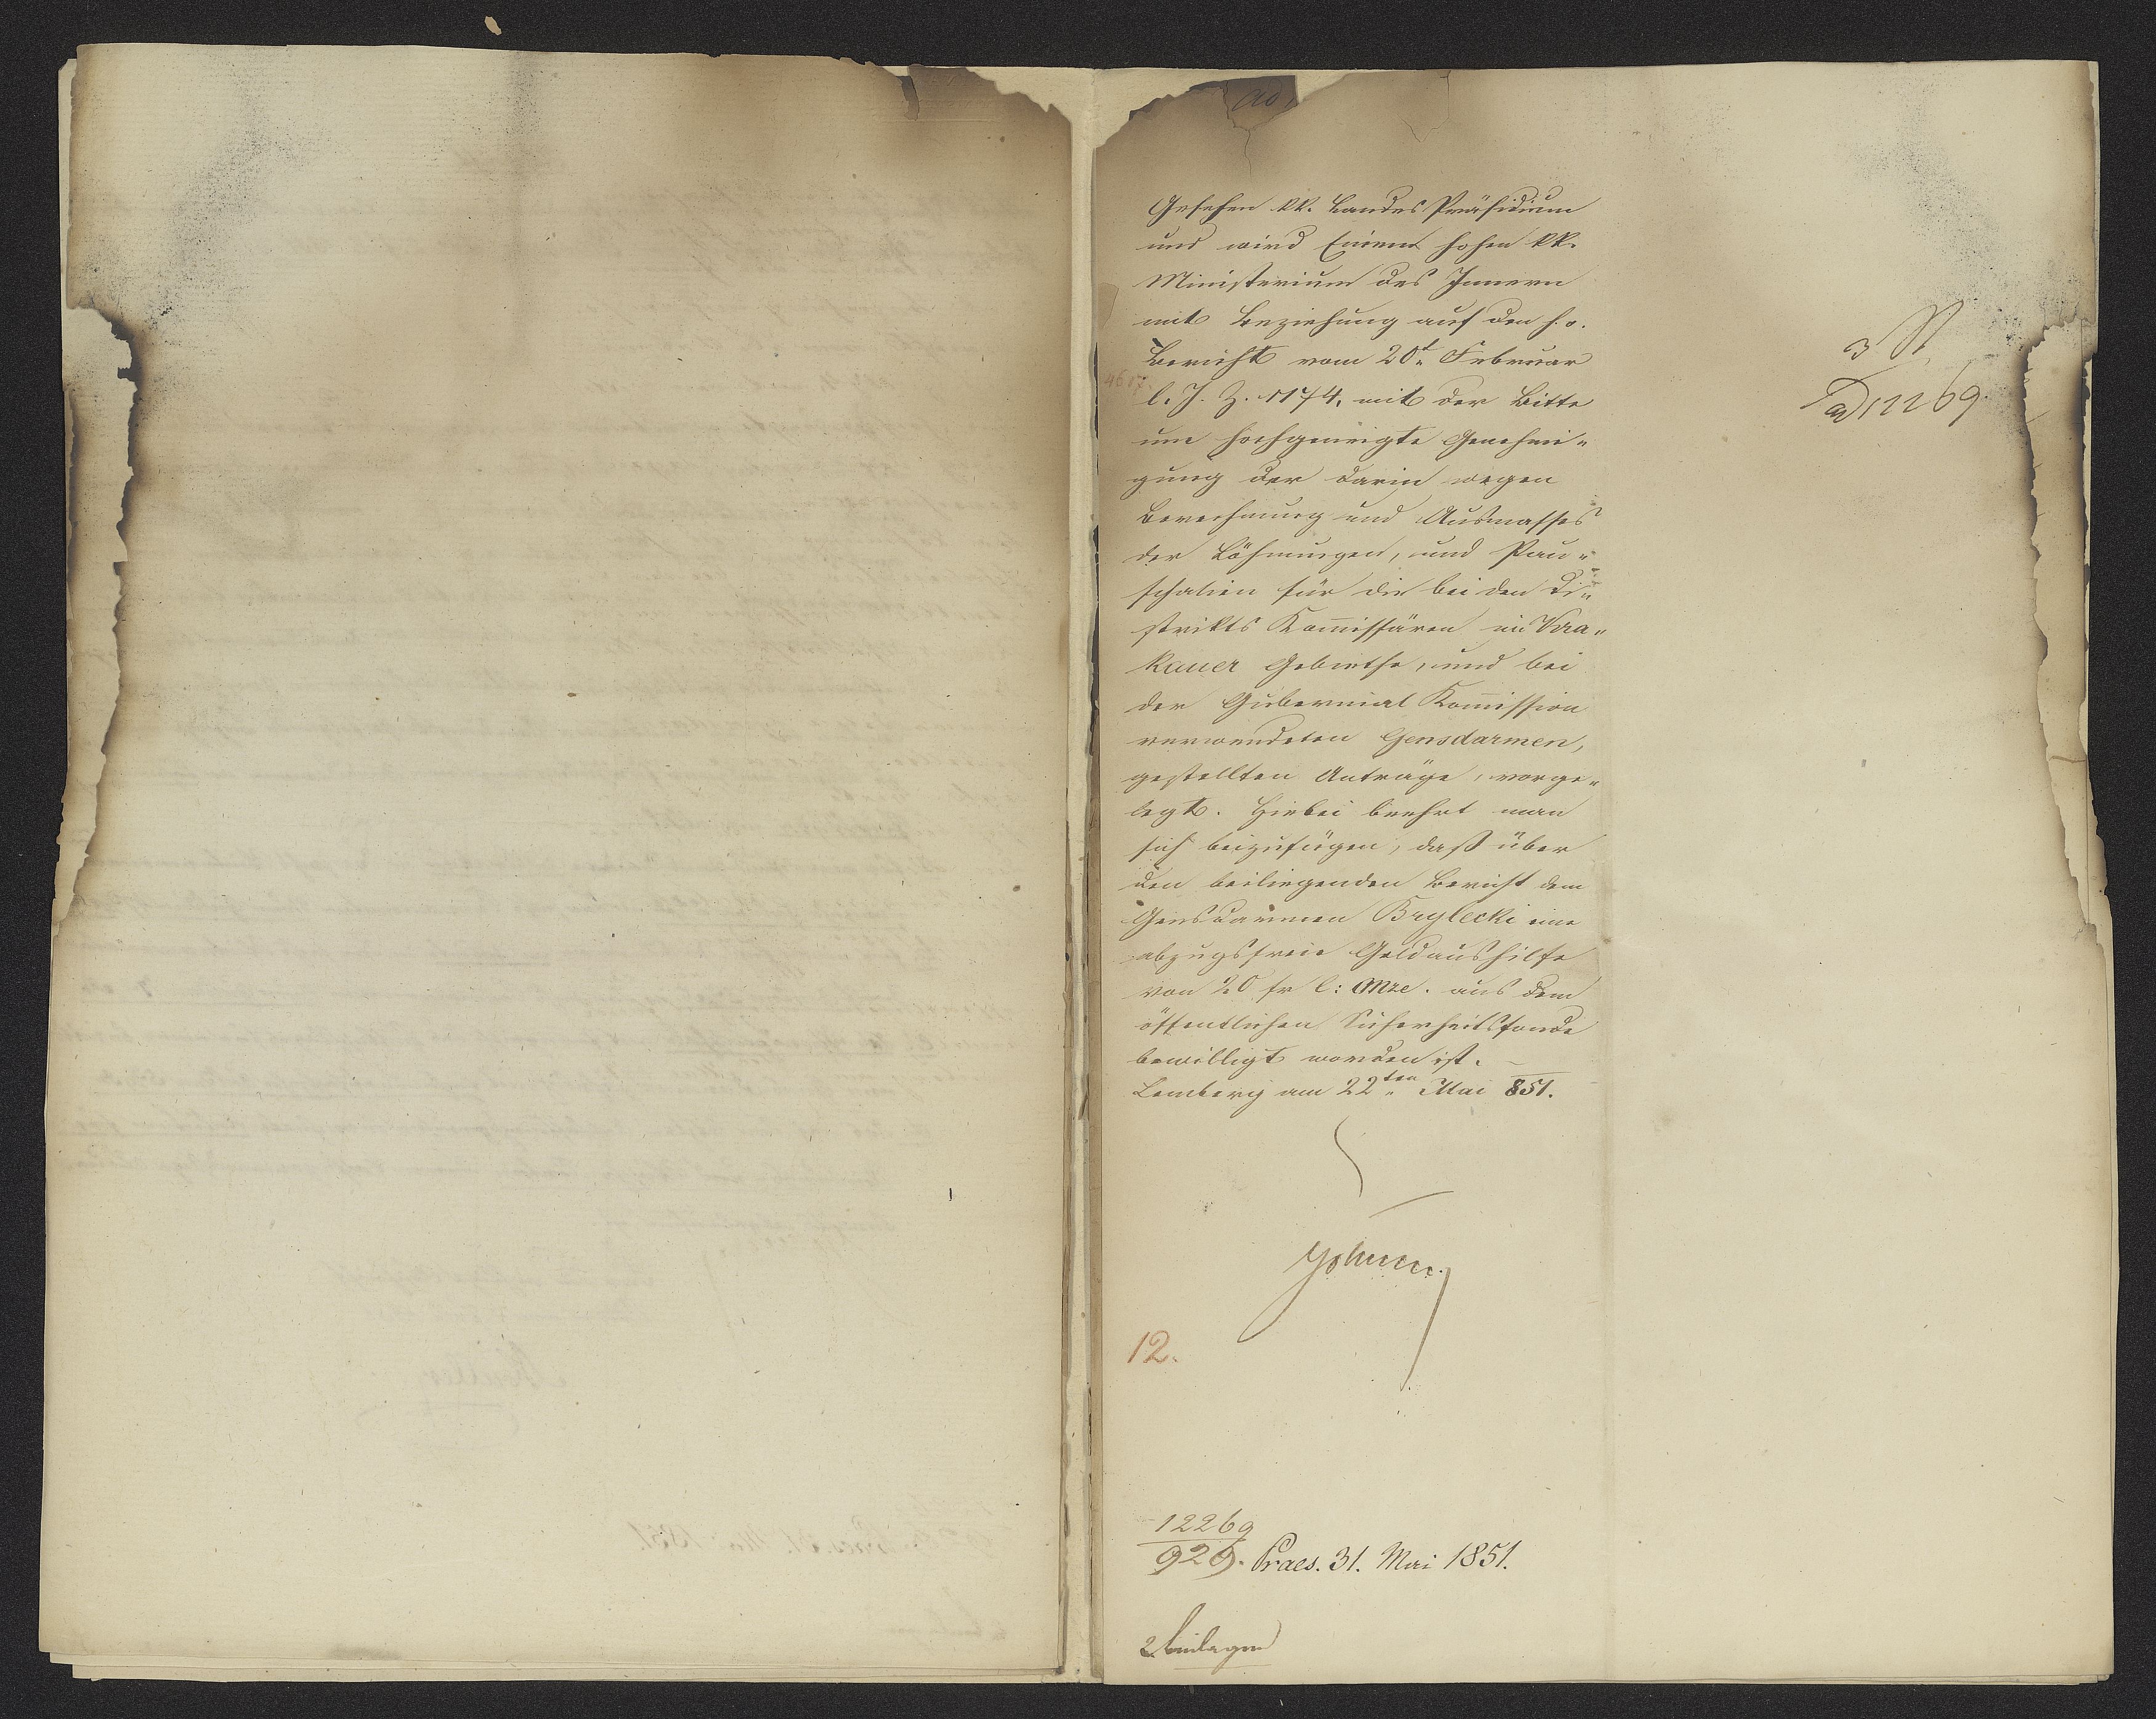 ad
Gesehen kk. Landes Präsidium
und wird Einem hohen kk.
Ministerium des Innern
mit Beziehung auf den h. o.
Bericht vom 20t. Februar
4617.
l. J. Z. 1174. mit der Bitte
um hochgeneigte Genehmi„
gung der darin wegen
Berechnung und Ausmasses
der Löhnungen, und Pau„
schalien für die bei den Di„
strikts Kom̄issären im Kra„
kauer Gebiethe, und bei
der Gubernial Kom̄ission
verwendeten Gensdarmen,
gestellten Anträge, vorge„
legt. Hiebei beehrt man
sich beizufügen, daß über
den beiliegenden Bericht dem
Gensdarmen Brylecki eine
abzugsfreie Geldaushilfe
von 20 fr C: Mze. aus dem
öffentlichen Sicherheitsfonde
bewilligt worden ist.
Lemberg am 22ten Mai 851.
12.
12269
929. Praes. 31. Mai 1851.
2 Beilagen
3 St
ad 12269.